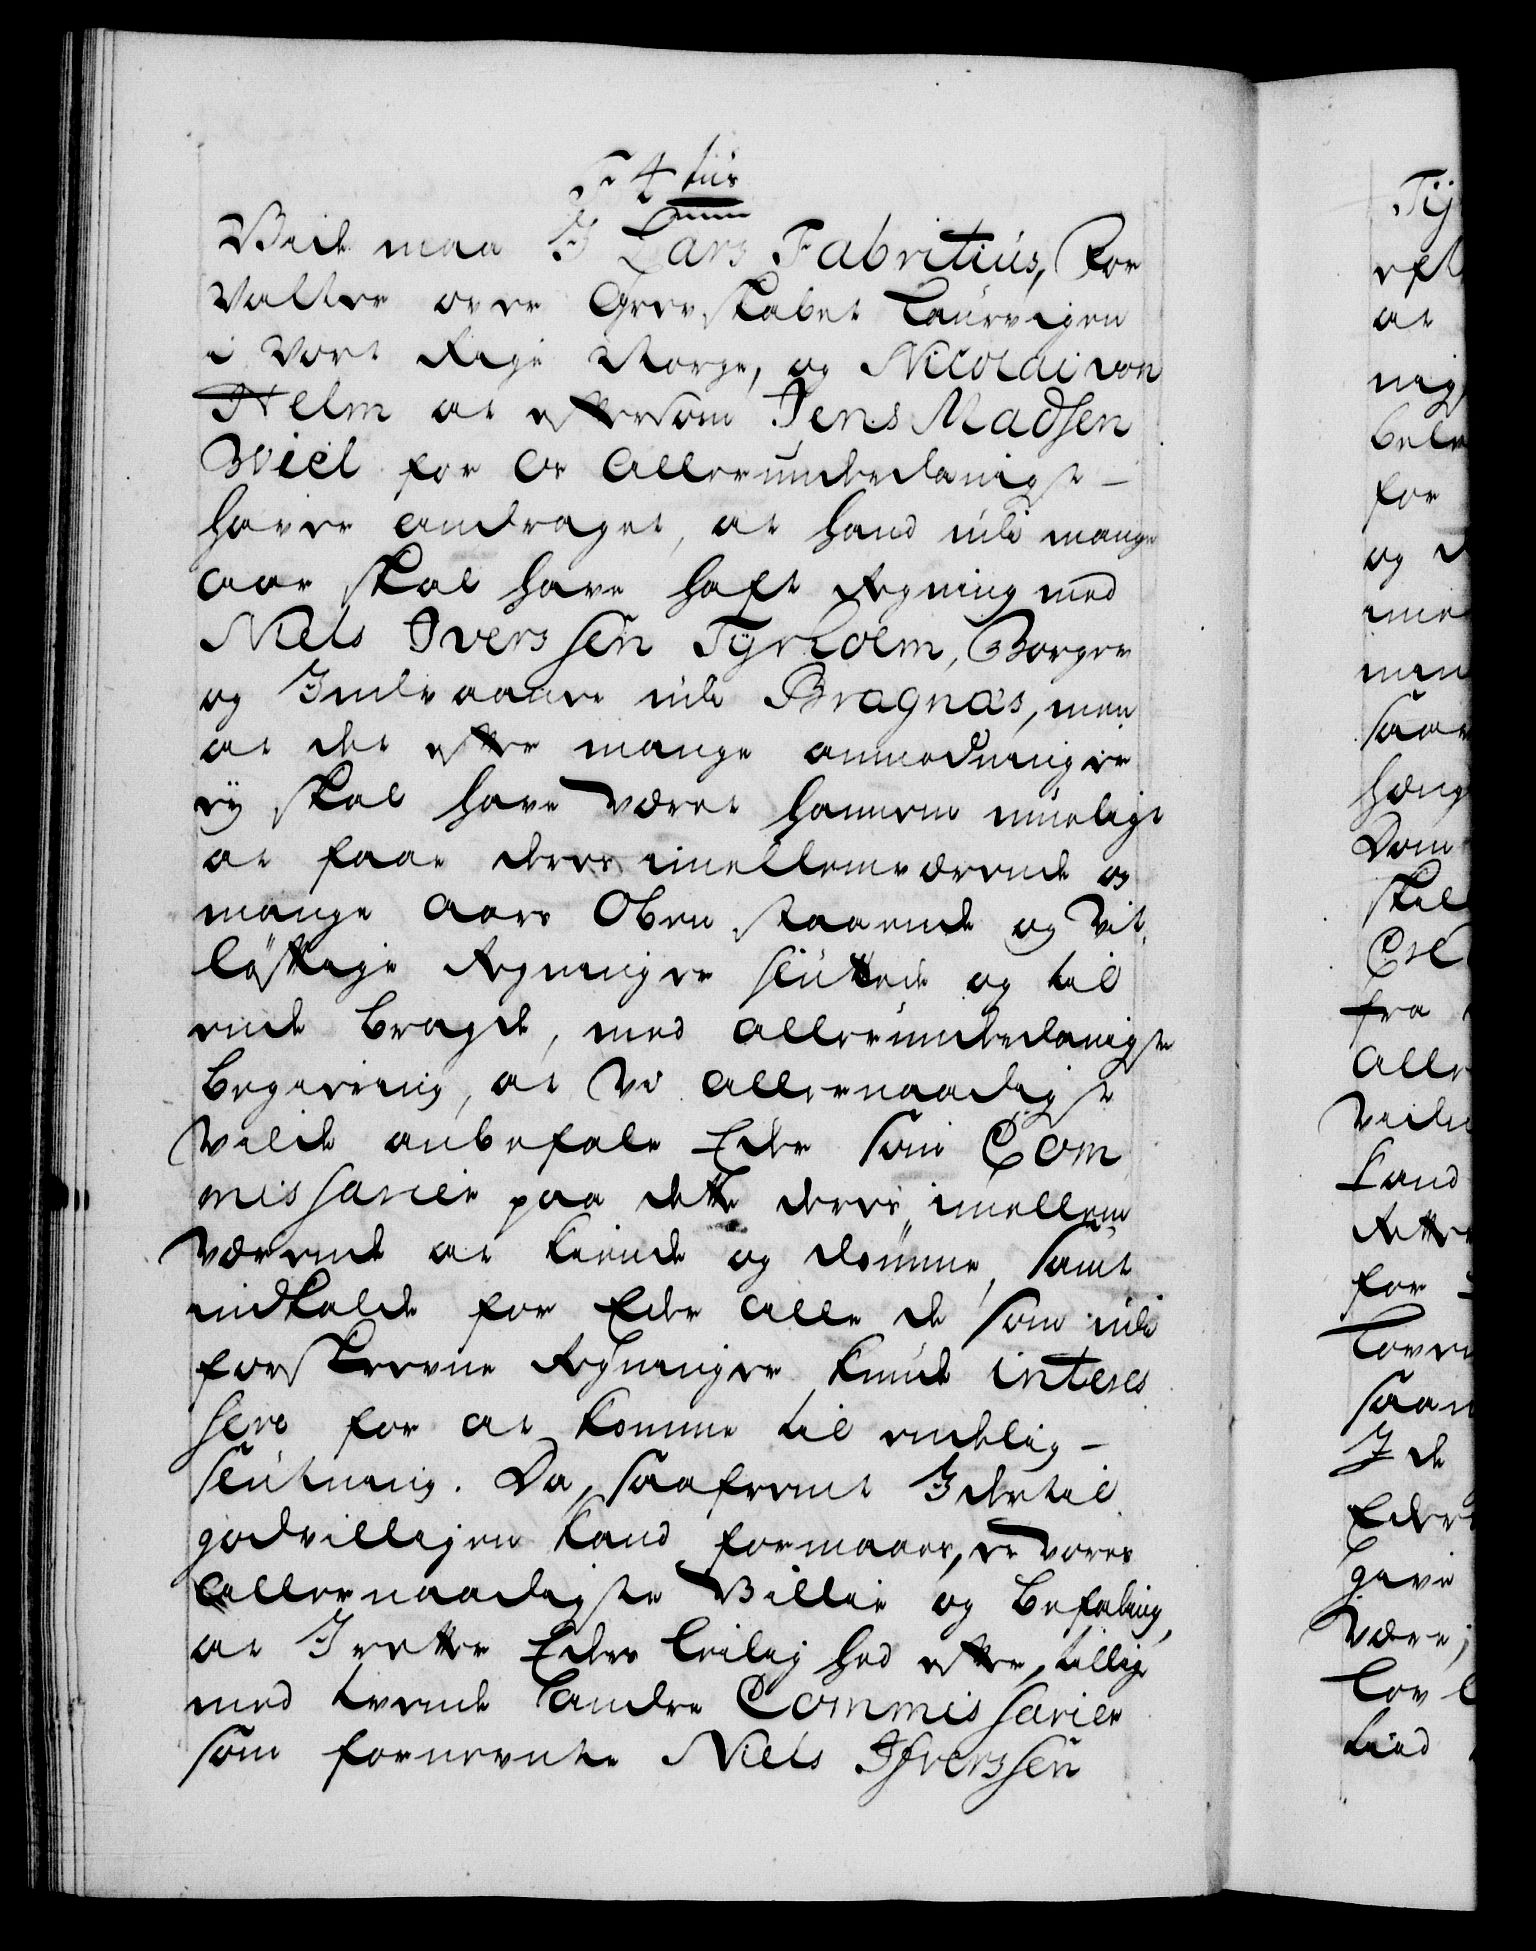 F 4 tus
Vide maa I Lars Fabritius, For
valter over Grevskabet Laurvigen
i Vort Rige Norge, og Nicolai von
Helm at eftersom Jens Madsen
Wiel for Os Allerunderdanigst –
haver andraget, at hand udi mange
aar skal have haft Regning med
Niels Iverssen Tyrholm, Borger
og Indvaaner udi Bragnæs, men
at det efter mange anmodninger
ej skal have været hannem mueligt
at faae deres imellemværende og
mange Aars Oben staaende og Vit
löftige Regninger sluttede og til
ende bragde, med allerunderdanigste
begiering, at Vi allernaadigst
vilde anbefale Eder som Com
missarier paa dette deres imellem
værende at kiende og dömme, samt
indkalde for Eder alle de som udi
forskrevne Regninger kunde interes
sere for at komme til endelig –
slutning. Da, saafremt I dertil
godvilligen kand formaaes, er vores
allernaadigste Villie og befaling,
at I retter Eders leilighed efter, tillige
med tvende andre Commissarier
som fornevnte Niels Ifverssen